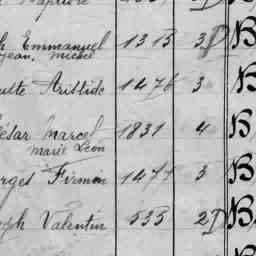 Emmanuel 1315 3 D B
Jean, Michel
Aristide 1476 3 B
César Marcel 1831 4 B
Marie Léon
rges Firmin 1477 3 B
ph Valentin 535 2 D B